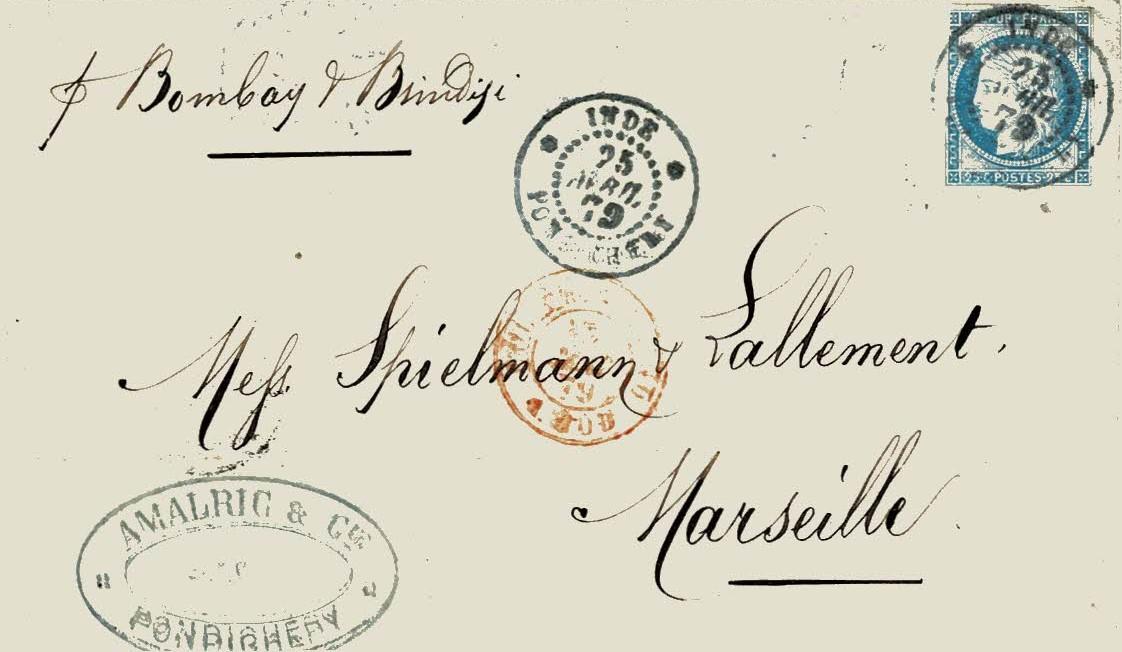 REPUB. FRANC.
INDE
25
AVRIL
79
25 c POSTES 25 c
p Bombay & Brindisi
INDE
25
AVRIL
79
PONDICHERY
Mess Spielmann & Lallement.
79
Marseille
AMALRIC & Cie
PONDICHERY